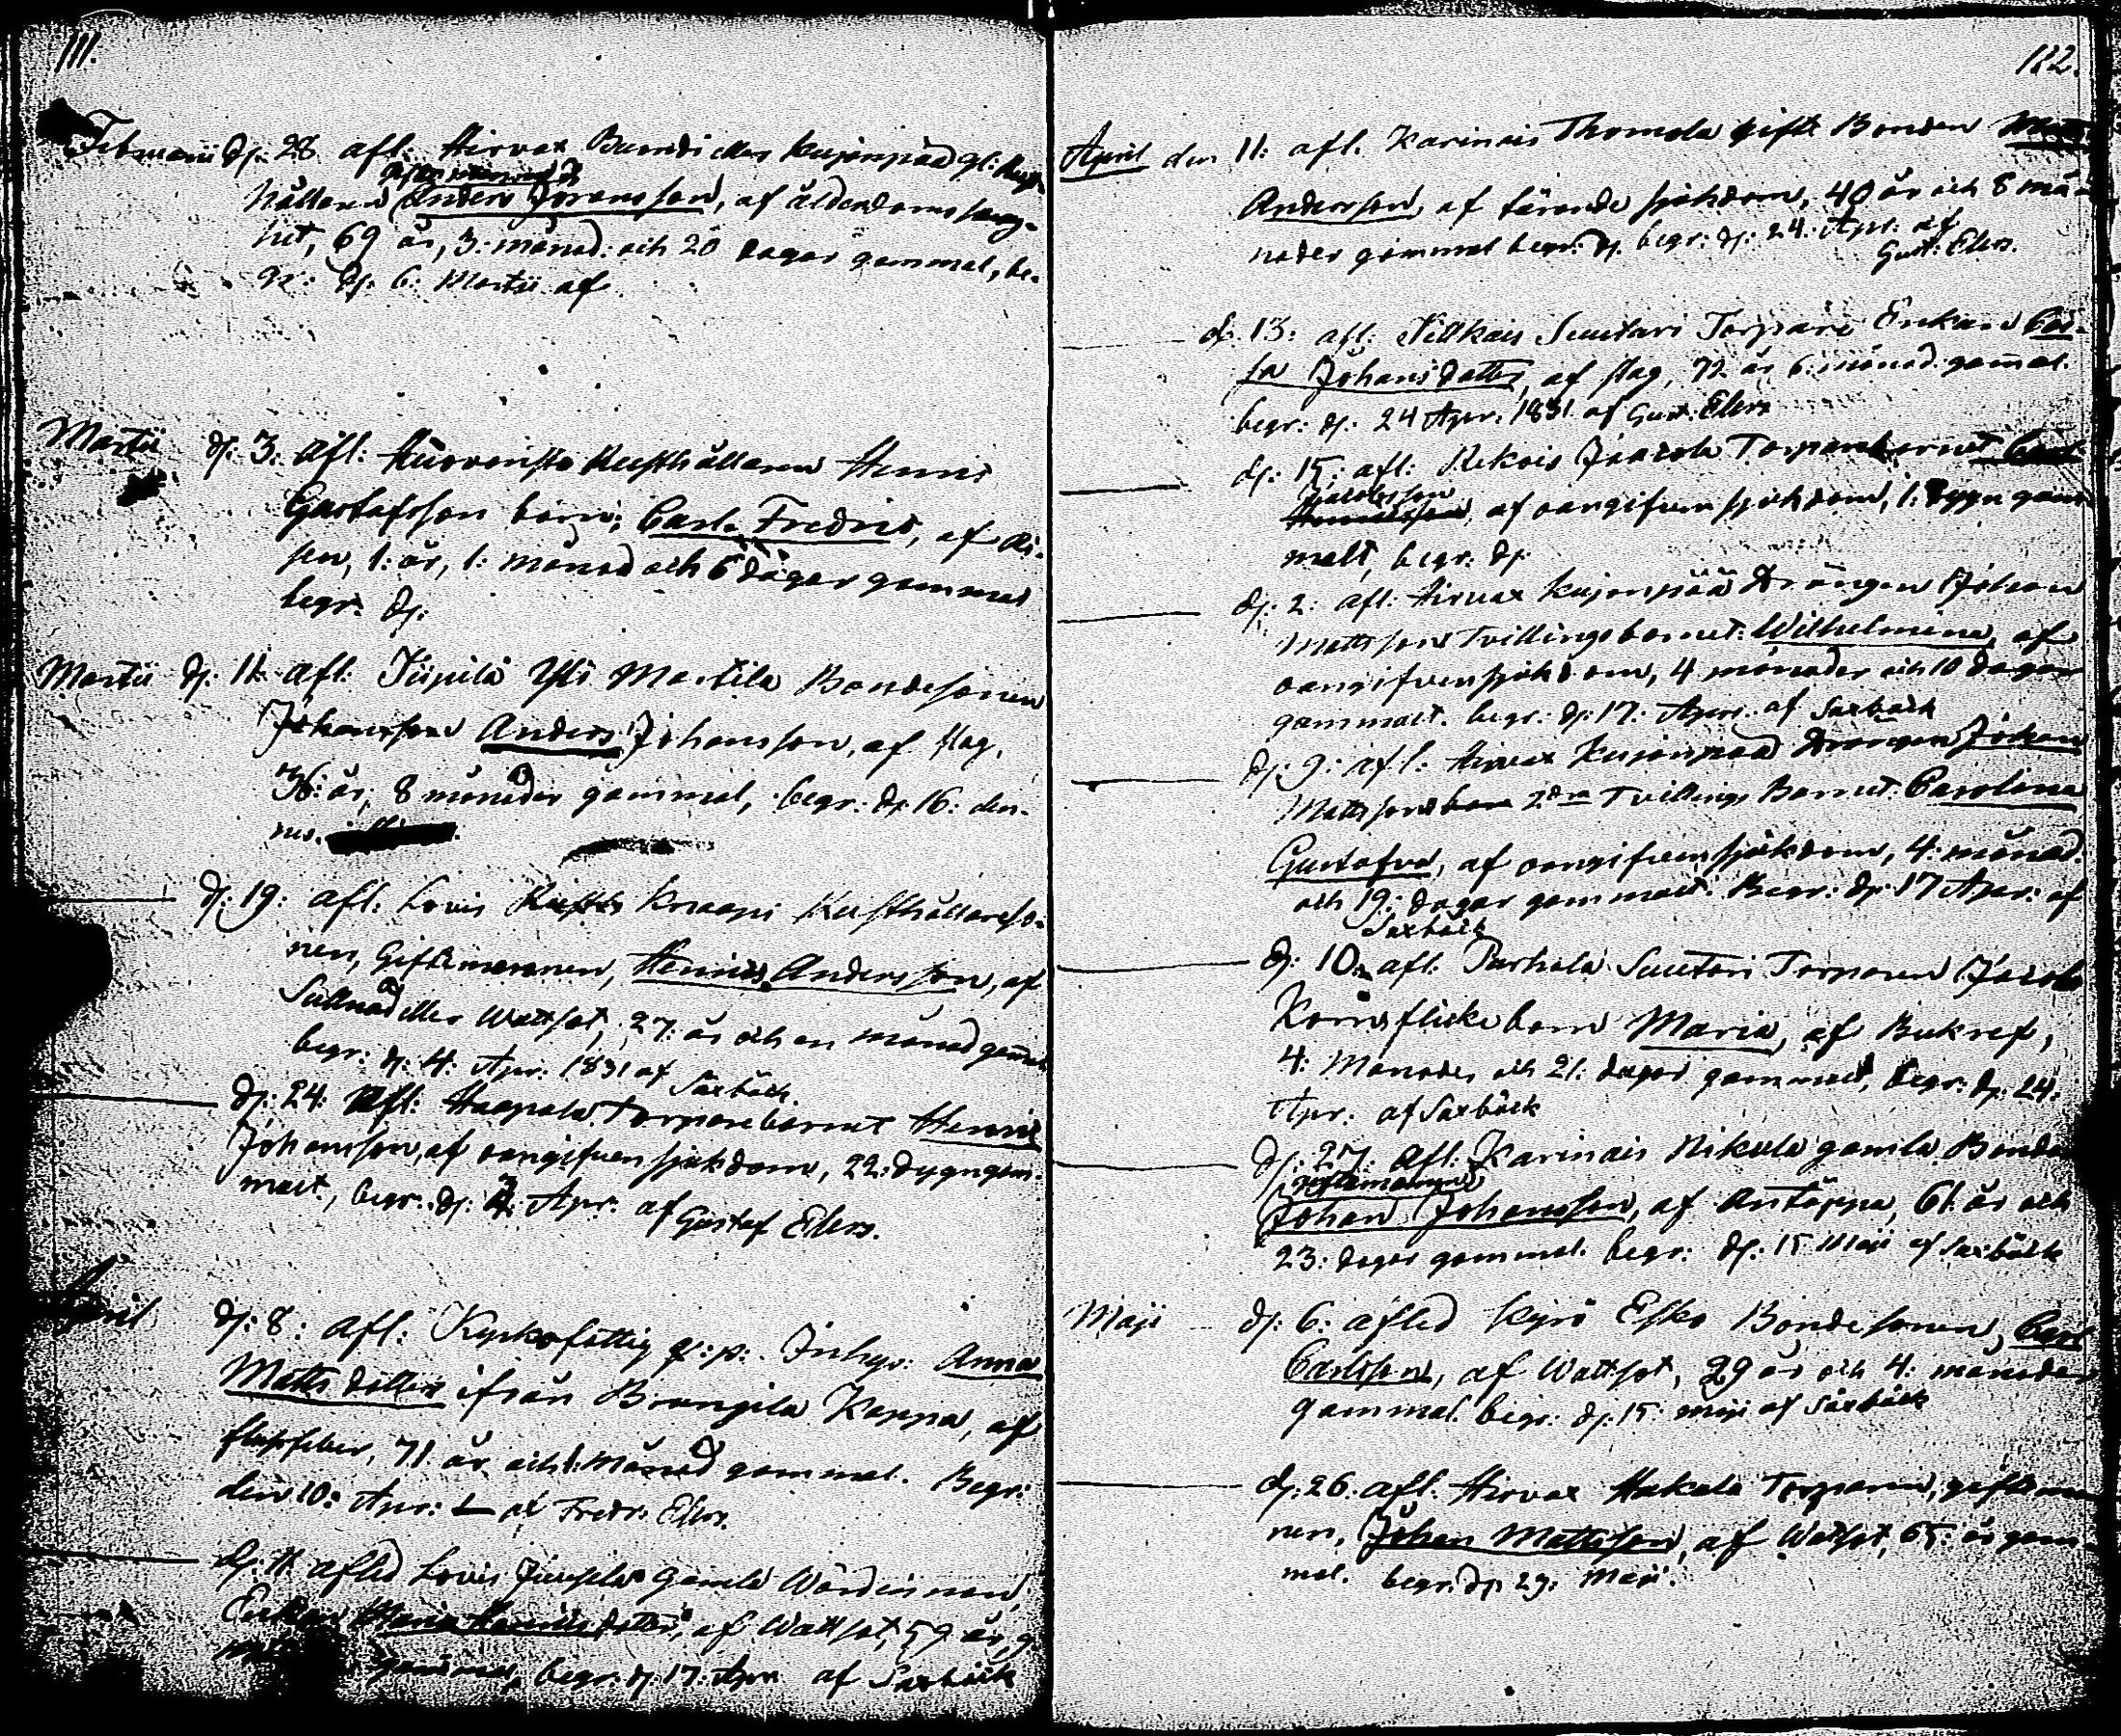 111.
Februarii dj: 28 afl: Hirvax Buendi eller Kujonpää gl: Rust-
hållaren Anders Joransson, af ålderdoms swag-
het, 69 år, 3: månad: och 20 dagar gammal, be-
gr: dj: 6: Martii af
Martii dj: 3: afl: Rusthållaren Henric
Gustafsson barn; Carl Fredric, af
1: år, 1: månad och 6 dagar gammal
begr: dj:
Martii dj: 11: afl: Yli Martila Bondesonen
Johansson Anders Johansson, af slag,
36: år, 8 månader gammal, begr: dj: 16: den-
nes.
dj: 19: afl: Lovis Knaapi Rusthållareso-
nen, Giftemannen, Henric Andersson, af
Sullnad eller Wattsot, 27: år och en månad gam̄al
begr: dj: 4: Apr: 1831 af Saxbäck.
dj: 24: Afl: Haapala Torparebarnet Henric
Johansson, af oangifven sjukdom, 22: dygn gam-
malt, begr: dj: Apr: af Gustaf Elers.
April dj: 8: afl: Kyrkofattig q: p: Inhys: Anna
Matts dotter ifrån Kappa, af
71 år och 1: Månad gammal. Begr:
den 10: Apr: af Fredr: Elers.
dj: 11 afled Lovis gamla Wärdinnan,
Enkan Maria Henricsdotter, af Wattsot, 59 år, 9:
gammal, begr: dj: 17: Apr: af Saxbäck
112.
April den 11: afl: Karinais Thomola gifte Bonden
Andersson, af tärande sjukdom, 40 år och 8 må-
nader gammal begr: dj. begr: dj: 24: Apr: af
Gust: Elers.
dj. 13: afl: Suutari Torpare Enkan Cai-
sa Johansdotter, af slag, 72 år 6: månad. gam̄al.
begr: dj: 24 Apr: 1831 af Gust: Elers
dj: 15: afl: Rekois Jaacola Torparebarnet
Jacobsson
af oangifven sjukdom, 1: Dygn gam-
malt, begr: dj:
dj: 2: afl: Hirvax Kujonpää Drängen Johan
Mattssons Tvillingebarnet: Wilhelmina, af
oangifven sjukdom, 4 månader och 10 dagar
gammalt. begr: dj: 17: Apr: af Saxbäck
dj: 9: afl: Hirvax Kujonpää Drängen Johan
Mattssons 2dra Tvillings Barnet: Carolina
Gustafva, af oangifven sjukdom, 4: månad.
och 19: dagar gammalt. Begr: dj: 17 Apr: af
Saxbäck
dj: 10 afl: Parhala Suutari Torparen Jacob
flickebarn Maria, af Bukref,
4: Månader och 21: dagar gammalt, begr: dj: 24:
Apr: af Saxbäck
dj: 27: Afl: Karinais Nikula gamla Bonden
giftemannen
Johan Johansson, af Antäppa, 61: år och
23: dagar gammal. begr: dj: 15 Maji af Saxbäck
Maji dj: 6: afled Kyrö Esko Bondesonen, Carl
Carlsson, af Wattsot, 29 år och 4: månader
gammal. begr: dj: 15: maji af Saxbäck
dj: 26. afl: Hirvax Hakala Torparen, giftman-
nen, Johan Mattsson, af Watsot, 65: år gam-
mal. begr: dj: 29: Maji.